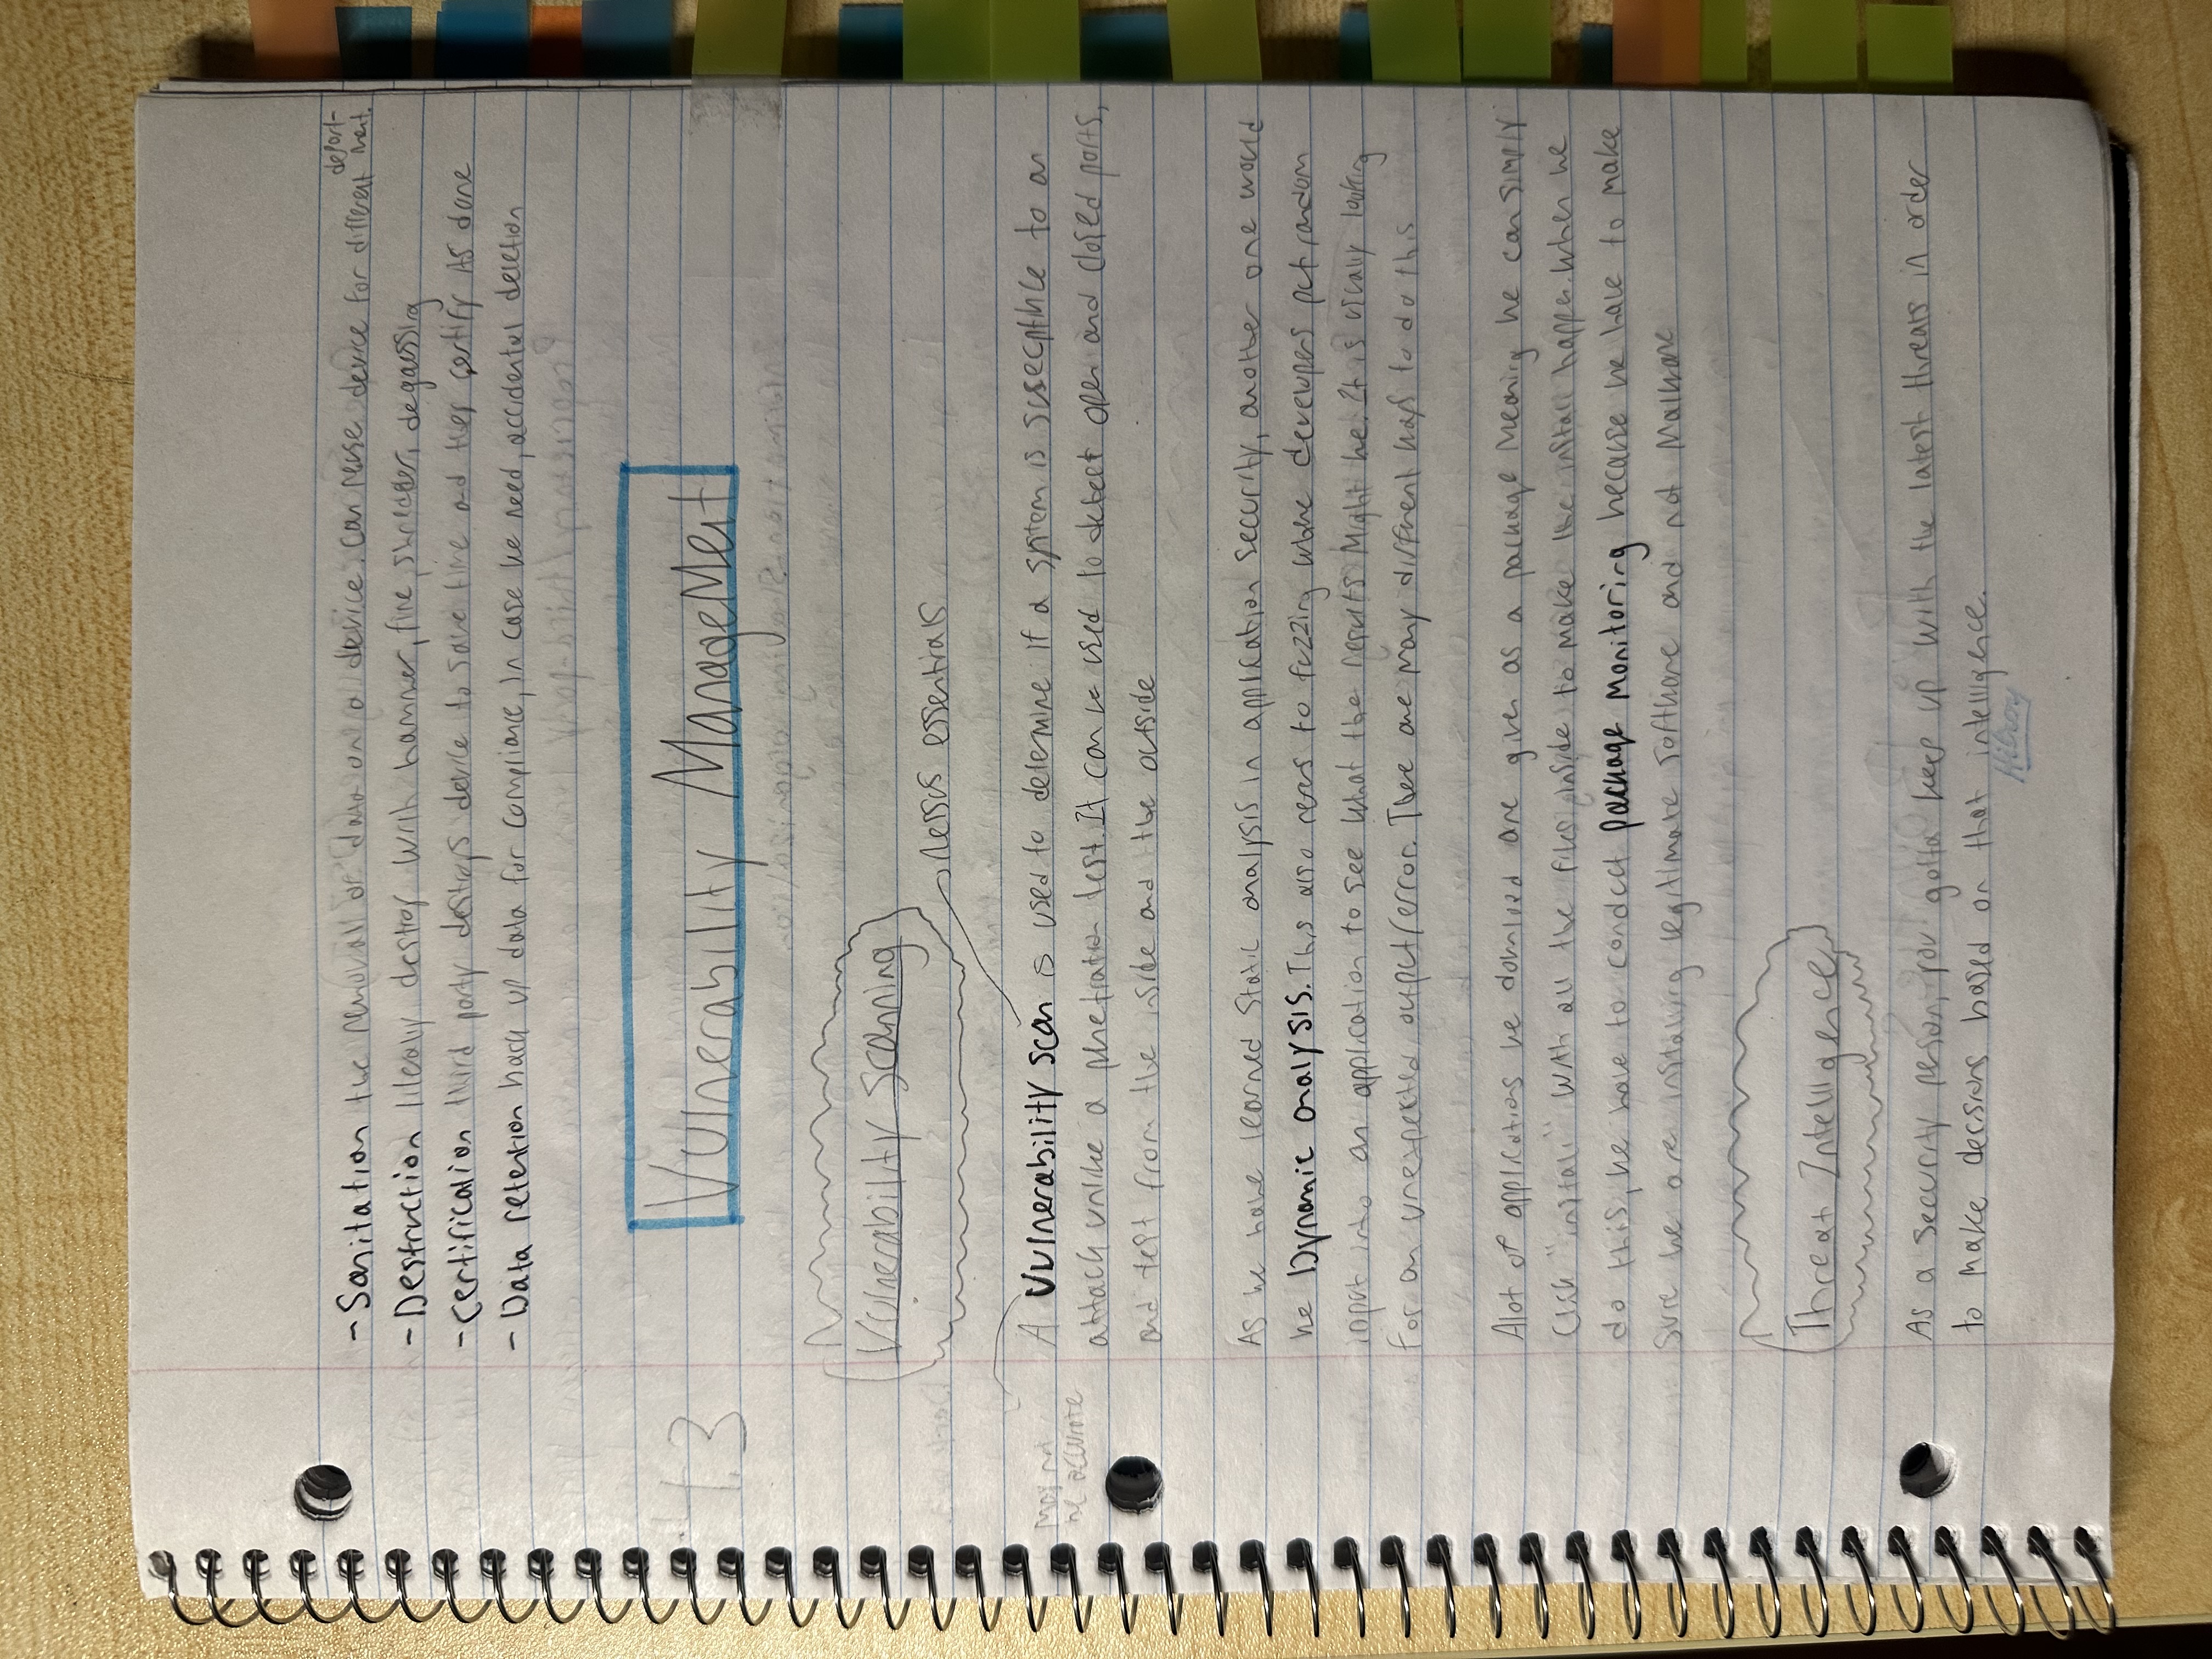 - Sanitation the removal of data on a device. Can reuse device for different depart-ment.
- Destruction literally destroy with hammer, fire, shredder, degaussing
- Certification third party destroys device to save time and they certify as done
- Data retention back up data for compliance, in case we need, accidental deletion
4.3 Vulnerability Management
Vulnerability Scanning
nessus essentials
May not
be accurate
A Vulnerability scan is used to determine if a system is suseptible to an
attack unlike a penetration test. It can be used to detect open and closed ports,
and test from the inside and the outside
As we have learned static analysis in application security, another one would
be Dynamic analysis. This also refers to fuzzing where developers put random
input into an application to see what the results might be. It is usually looking
for an unexpected output/error. There are many different ways to do this
Alot of applications we download are given as a package meaning we can simply
click "install" with all the files inside to make the install happen. When we
do this, we have to conduct package monitoring because we have to make
sure we are installing legitimate software and not malware
Threat Intelligence
As a security person, you gotta keep up with the latest threats in order
to make decisions based on that intelligence.
Hilroy